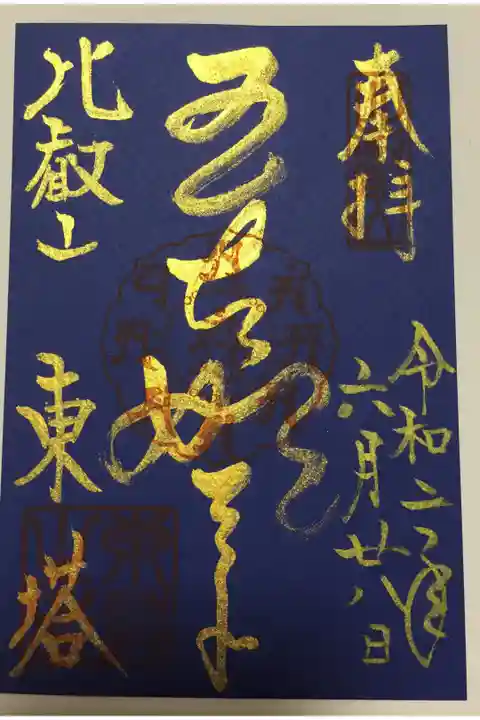 奉拝
令和二年
六月廿八日
五智如来
比叡山
東塔